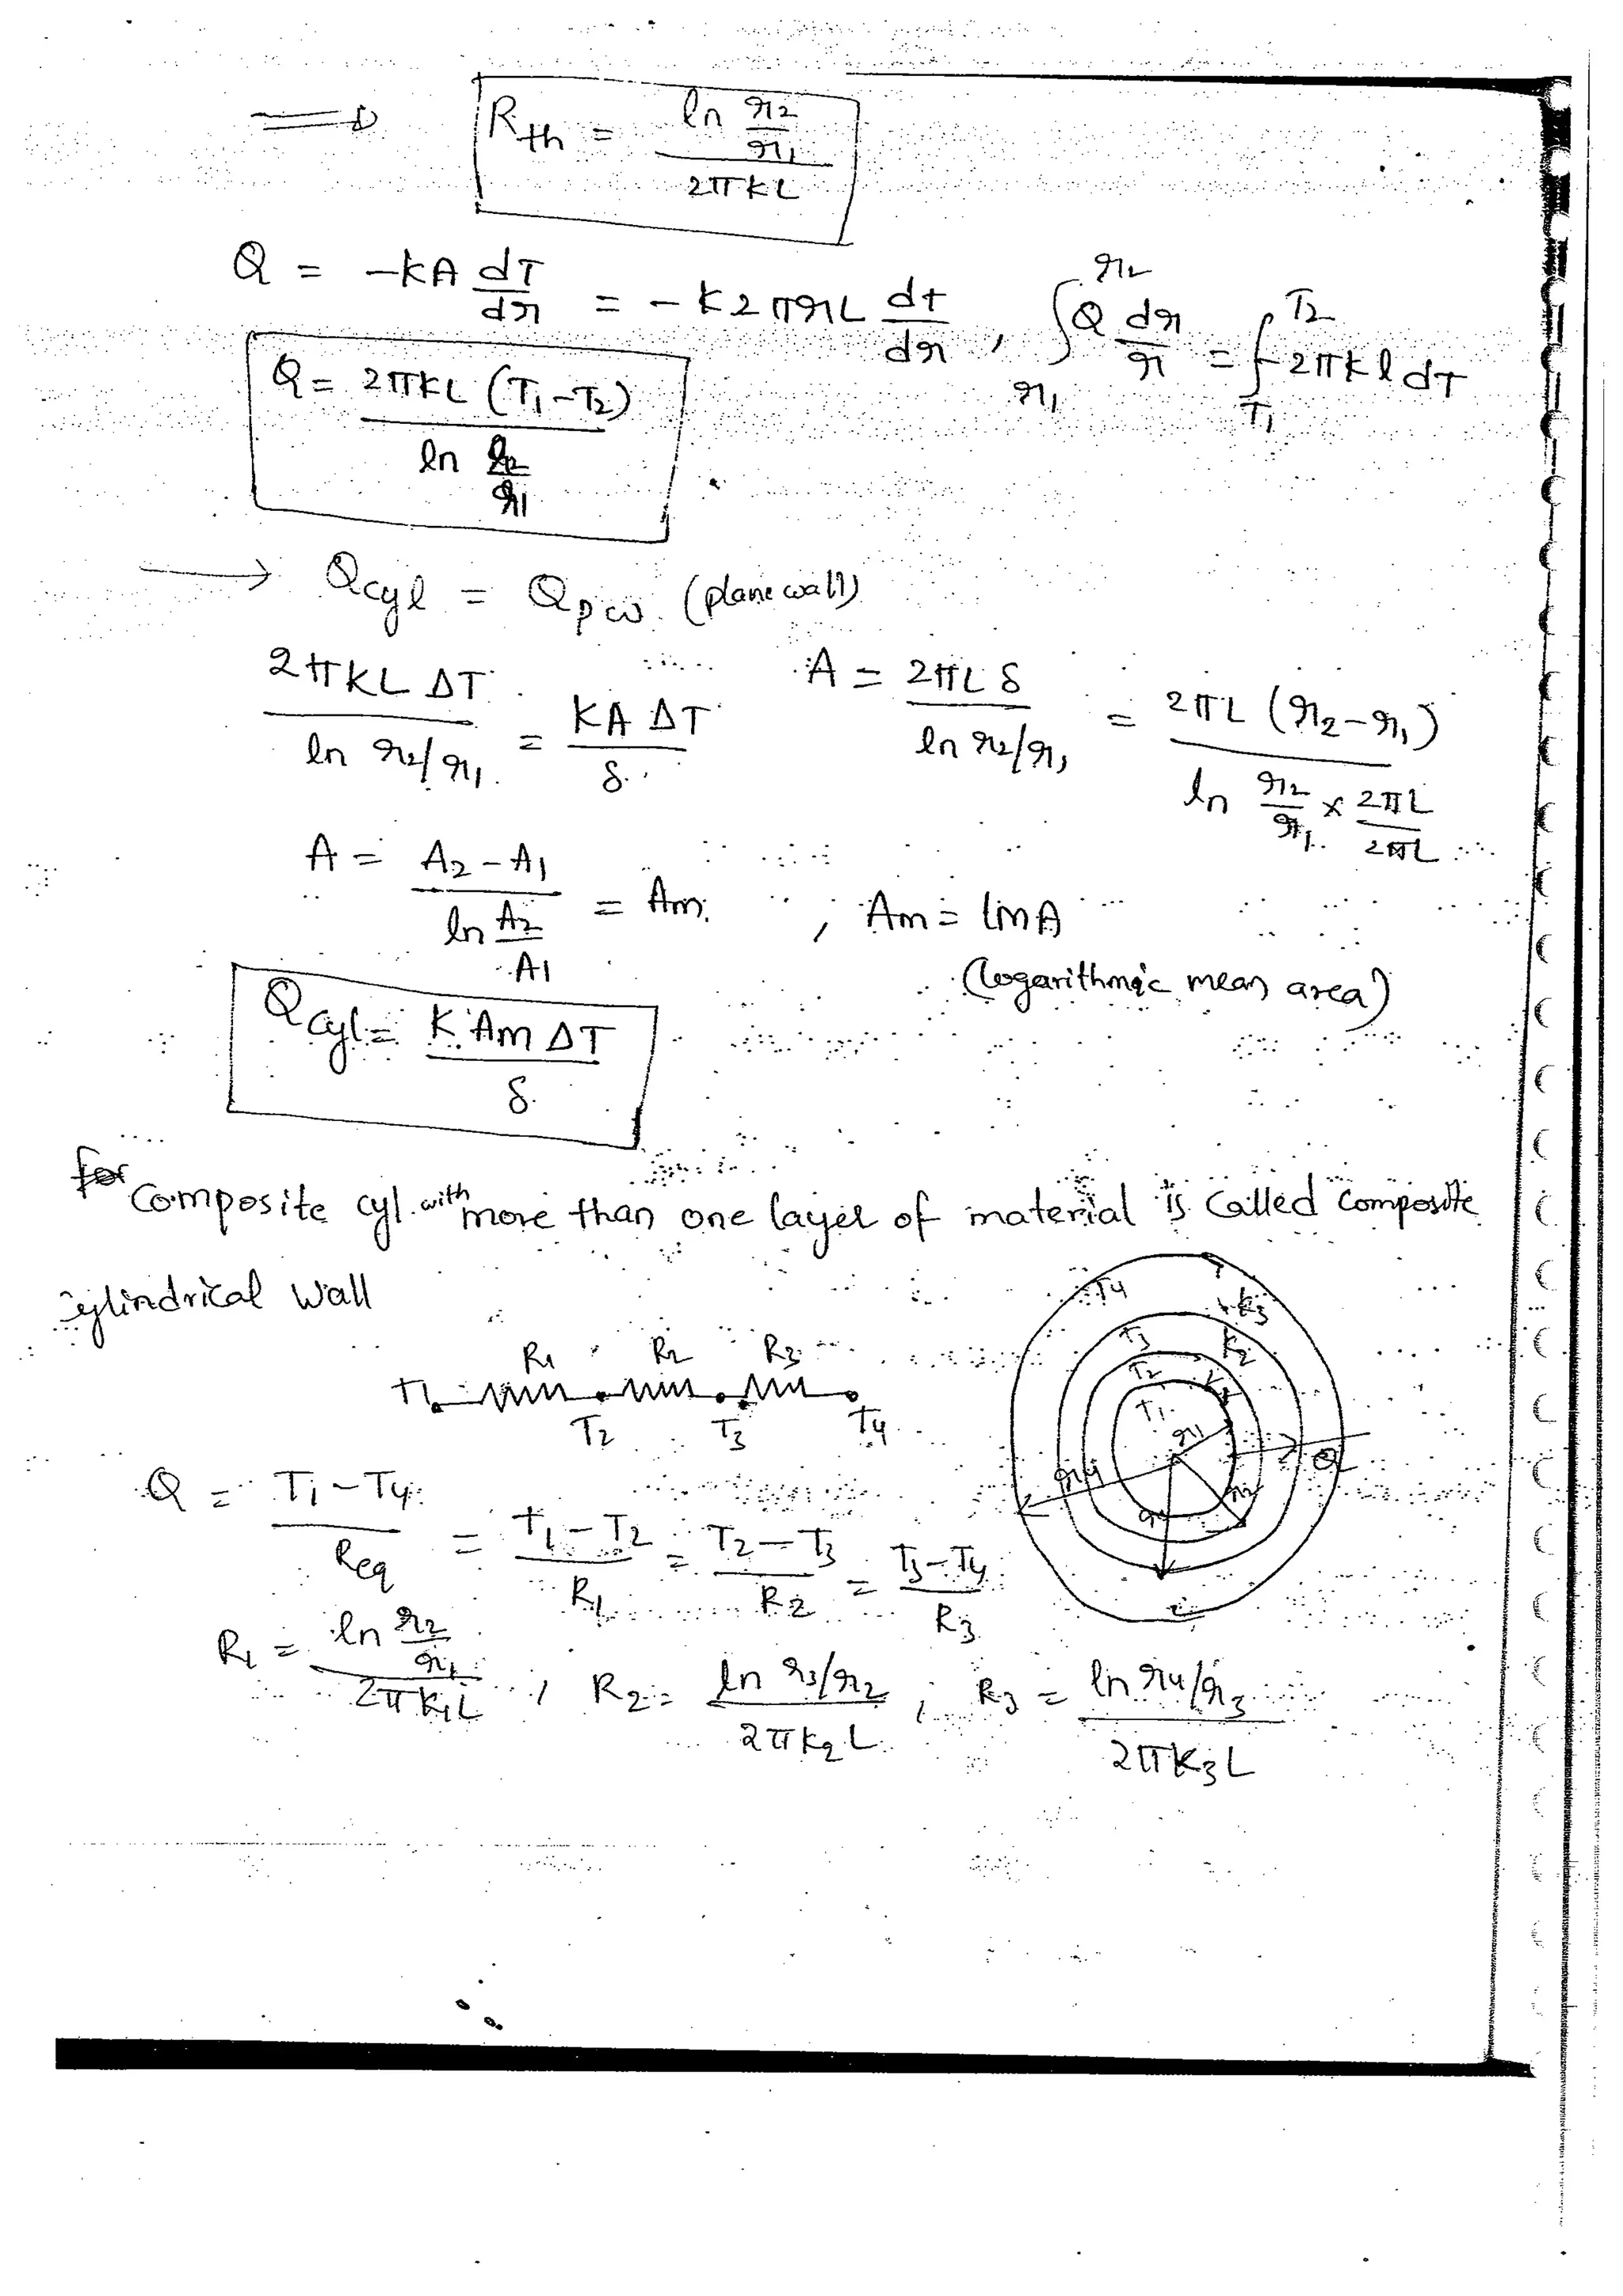 ⇒ R_th = (ln r2/r1) / (2πKL)
Q = -KA dT/dr = -K2πrL dt/dr , ∫_{r1}^{r2} Q dr/r = ∫_{T1}^{T2} -2πKl dT
Q = 2πKL (T1-T2) / ln r2/r1
→ Qcyl = Qpw. (plane wall)
2πKL ΔT / ln r2/r1 = KA ΔT / δ
A = 2πLδ / ln r2/r1 = 2πL (r2-r1) / (ln r2/r1 × 2πL/2πL)
A = (A2-A1) / (ln A2/A1) = Am , Am = LMA
(logarithmic mean area)
Qcyl = K Am ΔT / δ
Composite cyl. with more than one layer of material is Called Composite
cylindrical Wall
R1 R2 R3
T1 T2 T3 T4
T4 K3
T3 K2
T2 K1
T1 r1
r4 Q
r2
Q = (T1-T4)/Req = (T1-T2)/R1 = (T2-T3)/R2 = (T3-T4)/R3
R1 = (ln r2/r1) / (2πK1L) , R2 = (ln r3/r2) / (2πK2L) ; R3 = (ln r4/r3) / (2πK3L)